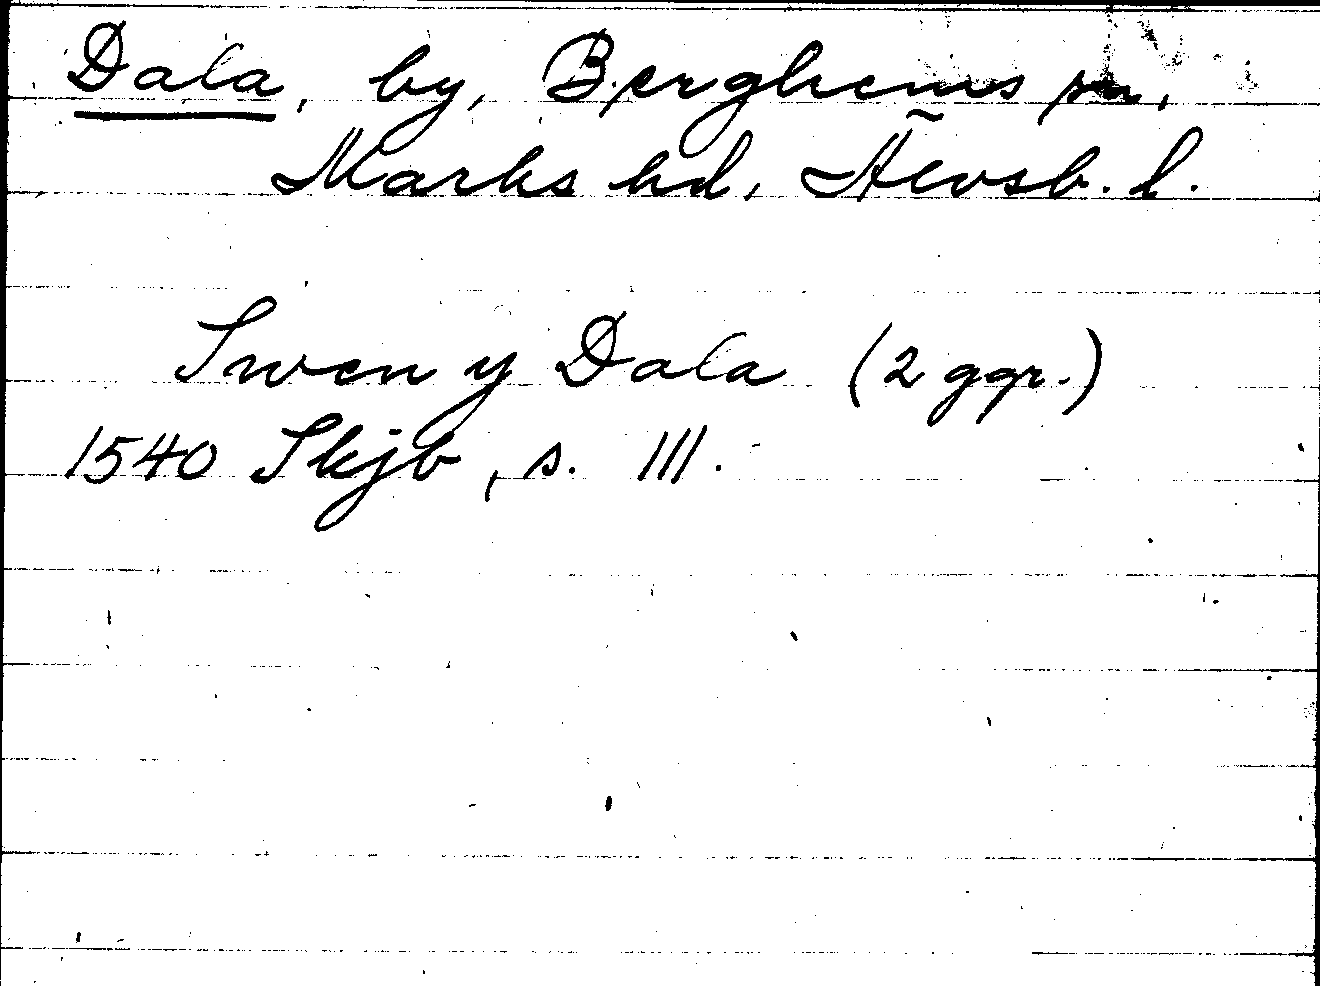 Dala, by, Berghems sn,
Marks hd, Älvsb. l.
Swen y Dala (2 ggr.)
1540 Skjb, s. 111.